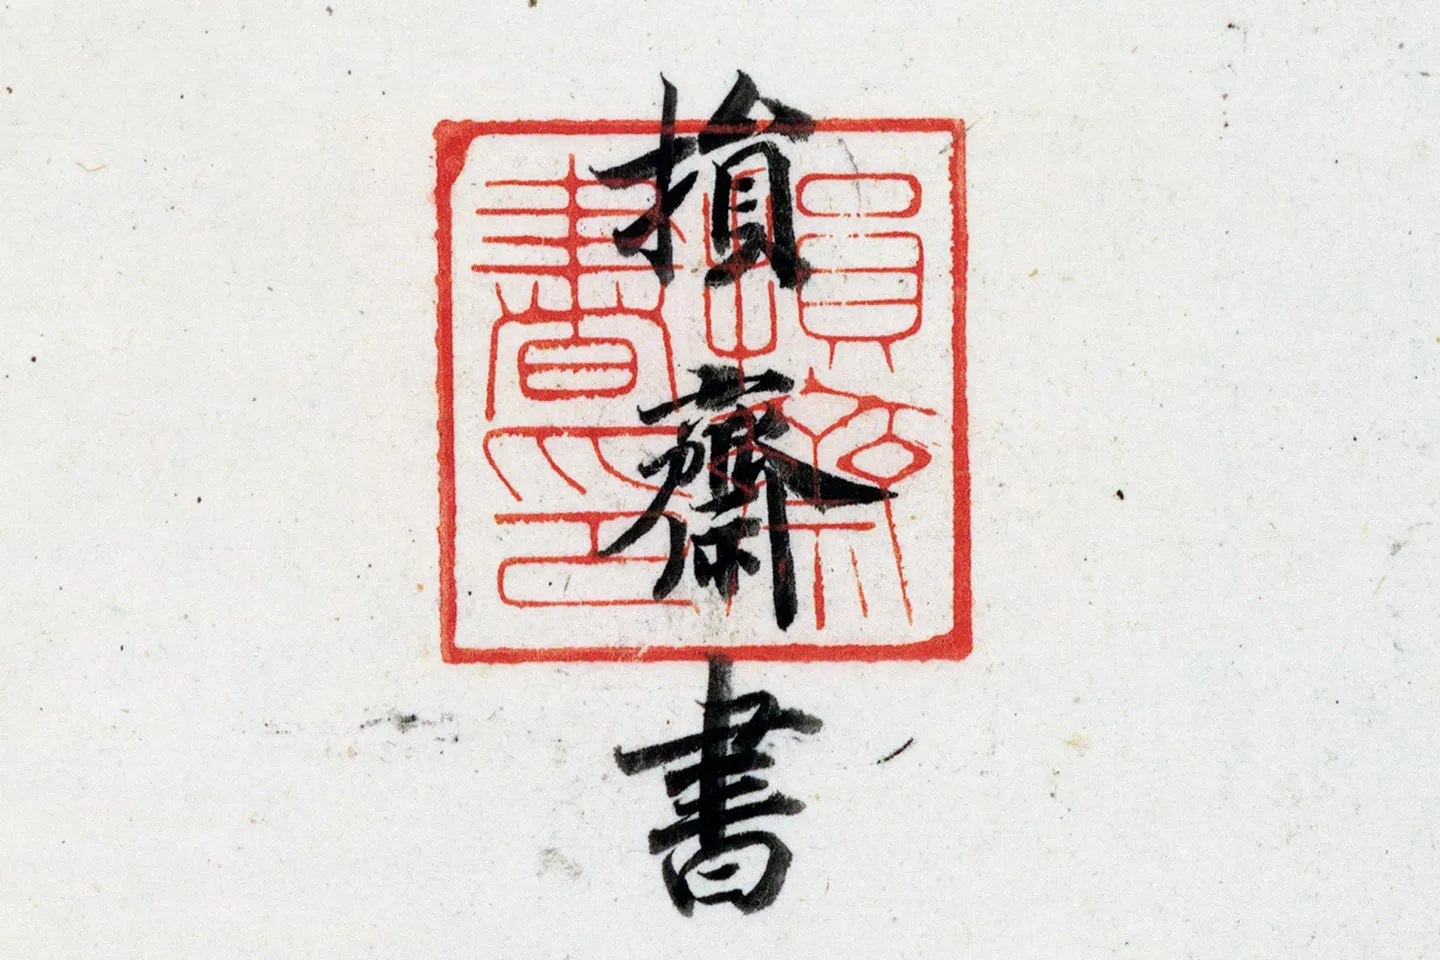 損齋書
損齋
書印